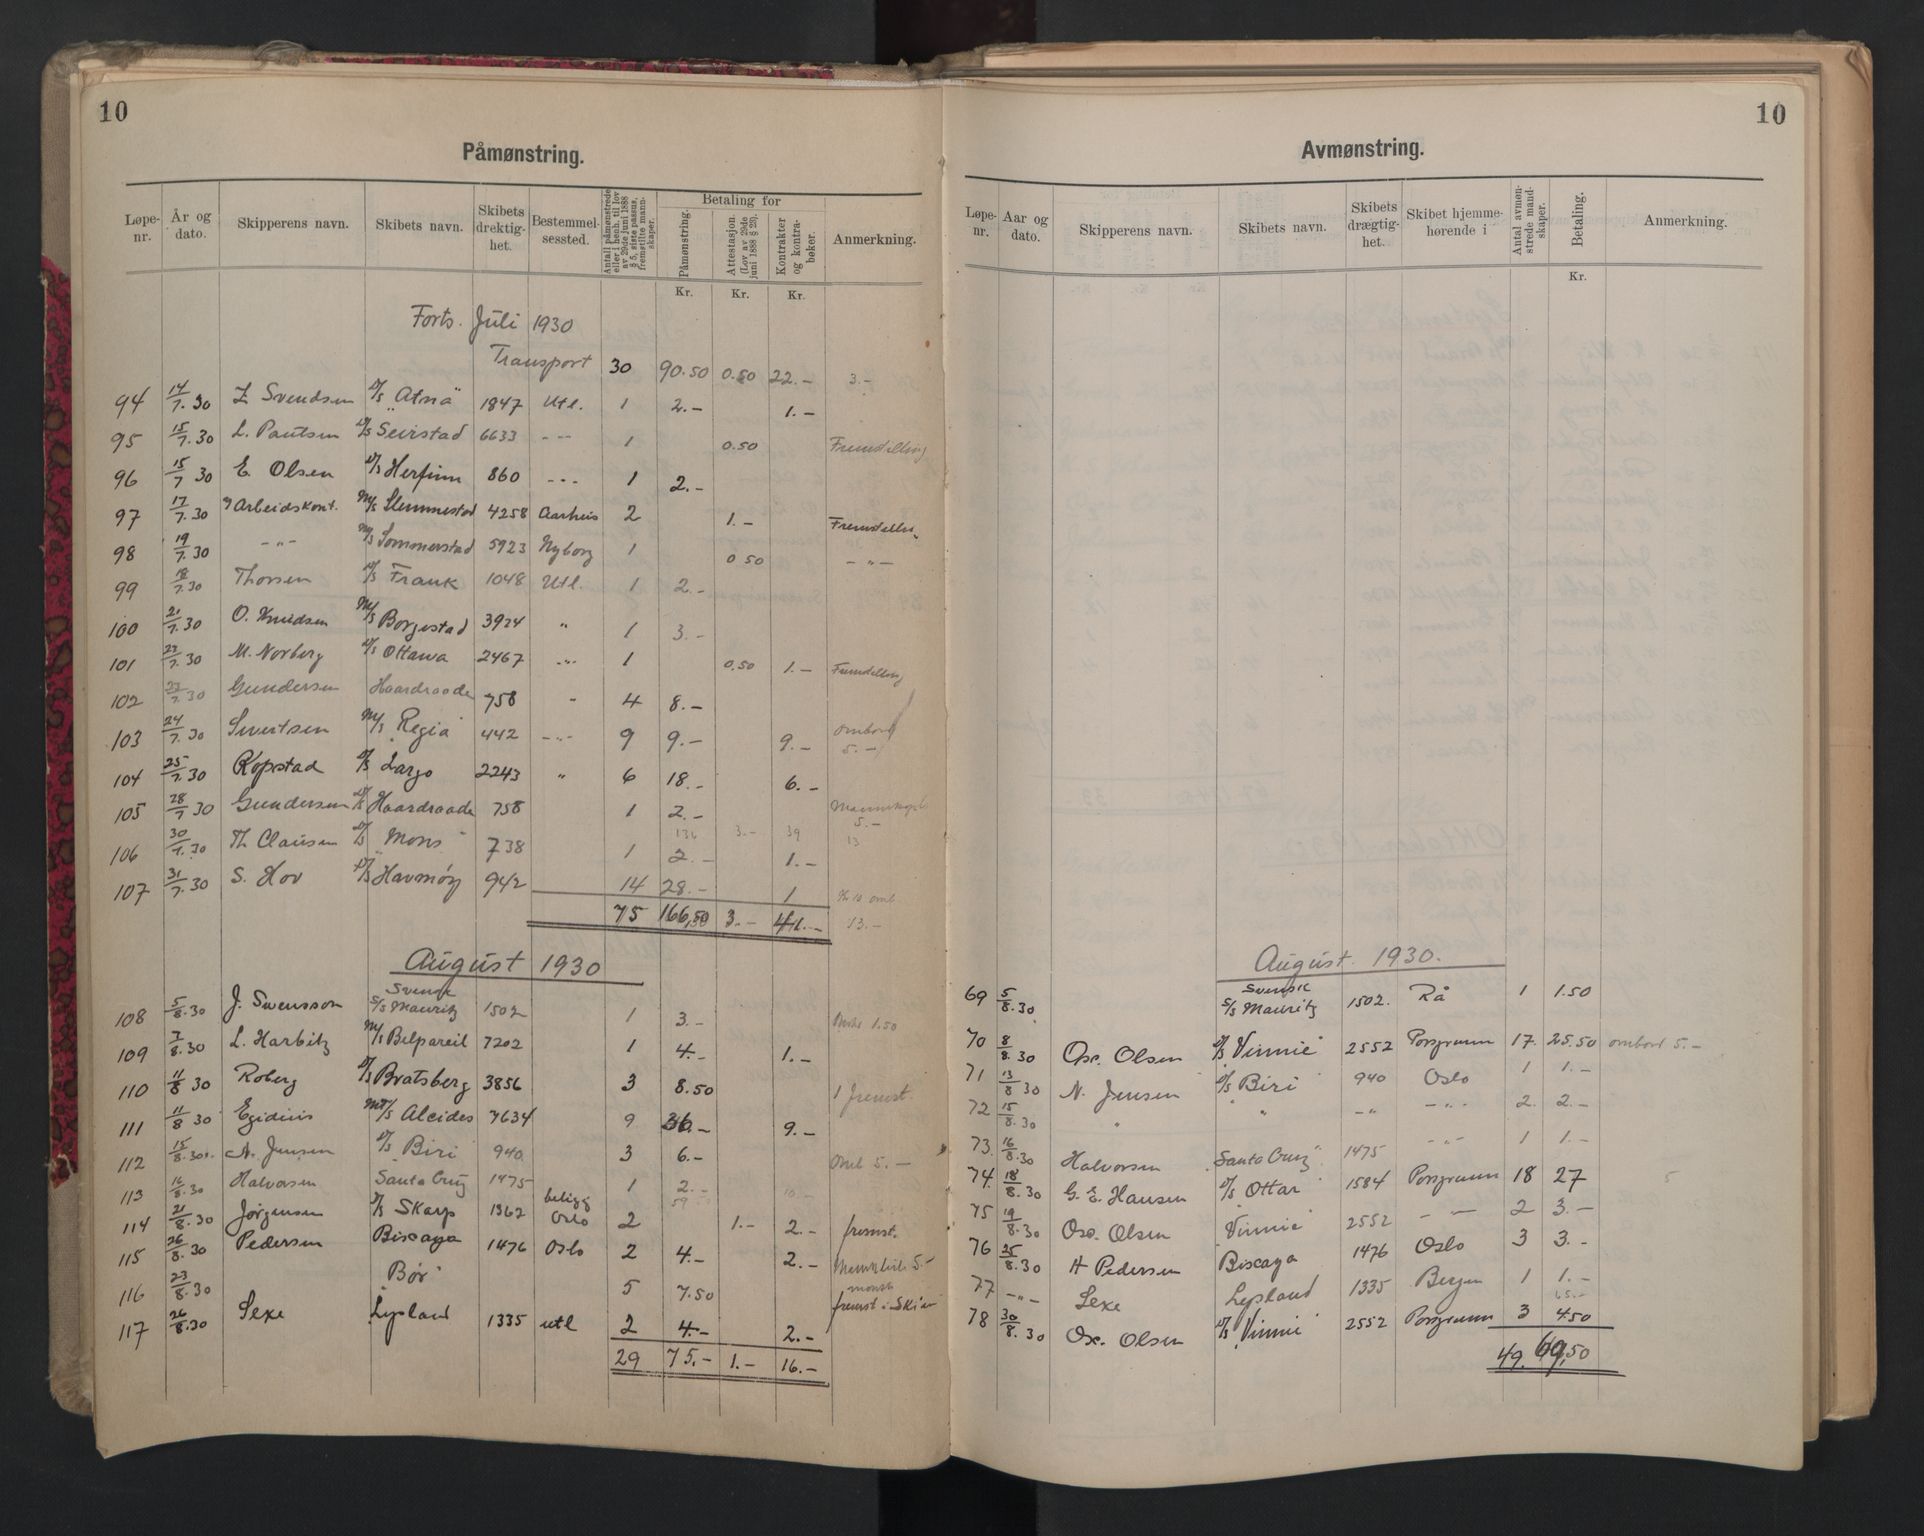 10
Påmønstring.
Løpe-nr. | År og dato. | Skipperens navn. | Skibets navn. | Skibets drektig-het. | Bestemmel-sessted. | Antall påmønstrede eller i henh. til lov av 29de juni 1888 § 5, siste passus, fremstilte mann-skaper. | Betaling for | Påmønstring. | Attestasjon. (Lov av 29de juni 1888 § 29). | Kontrakter og kontra-bøker. | Anmerkning.
Kr. Kr. Kr.
Forts. Juli 1930
Transport 30 90.50 0.50 22.- 3.-
94 14/7.30 Svendsen D/S "Atna" 1847 Utl. 1 2.- 1.-
95 15/7.30 L. Paulsen D/S Seirstad 6633 -"- 1 0.50 Fremstilling
96 15/7 30 E. Olsen D/S Herfinn 860 -"- 1 2.-
97 17/7.30 Arbeidskont. M/S Slemmestad 4258 Aarhus 2 1.-
98 19/7.30 -"- M/S Sommerstad 5923 Nyborg 1 0 50 -"-
99 18/7.30 Thorsen D/S Frank 1048 Utl. 1 2.-
100 21/7.30 O. Knudsen M/S Borgestad 3924 " 1 3.-
101 23/7.30 M. Norberg D/S Ottawa 2467 -"- 1 0,50 1.- Fremstilling
102 23/7.30 Gundersen Haardraade 758 " 4 8.-
103 24/7.30 Sivertsen M/S Regia 442 -"- 9 9.- 9.- ombord 5.-
104 25/7.30 Ropstad D/S Largo 2243 " 6 18.- 6.-
105 28/7 30 Gundersen D/S Haardraade 758 1 2.- 5.-
136 3.- 39 13
106 30/7.30 Th Clausen D/S "Mons" 738 1 2.- 1.-
107 31/7.30 S. Hov D/S Havmøy 942 14 28.- 1
75 166,50 3.- 41.- 13.-
August 1930
108 5/8.30 J. Svensson Svensk S/S Mauritz 1502 1 3.- 1.50
109 7/8.30 L. Harbitz M/S Belpareil 7202 1 4.- 1.-
110 11/8 30 Roberg D/S Bratsberg 3856 3 8.50 1 fremst.
111 11/8 30 Egidius M/S Alcides 7634 9 36.- 9.-
112 15/8.30 N. Jensen D/S Biri 940 3 6.- Omb 5.-
113 16/8.30 Halvorsen Santa Cruz 1475 1 2.-
59
114 21/8.30 Jørgensen D/S Skarp 1362 Oslo 2 1.- 2.- fremst.
115 26/8.30 Pedersen Biscaya 1476 Oslo 2 4.- 2.- 5.-
116 23/8.30 "Bør" 5 7.50 mønst
117 26/8.30 Sexe Lysland 1335 utl 2 4.- 2.- fremst i Skien
29 75.- 1.- 16.-
10
Avmønstring.
Løpe-nr. | Aar og dato. | Skipperens navn. | Skibets navn. | Skibets drægtig-het. | Skibet hjemme-hørende i | Antal avmøn-strede mand-skaper. | Betaling. | Anmerkning.
Kr.
August. 1930.
69 5/8.30 Svensk S/S Mauritz 1502. Rå 1 1.50
70 8/8.30 Osc. Olsen D/S "Vinnie" 2552 Porsgrunn 17. 25.50 ombord 5.-
71 13/8 30 N. Jensen D/S "Biri" 940 Oslo 1 1.-
72 15/8.30 " " -"- -"- 2. 2.-
73. 16/8.30 Halvorsen "Santa Cruz" 1475 -"- 1 1.-
74. 18/8.30 G. E. Hansen D/S "Ottar" 1584 Porsgrunn 18 27 5
75 19/8.30 Osc. Olsen "Vinnie" 2552 -"- 2 3.-
76 25/8.30 H Pedersen Biscaya 1476 Oslo 3 3.-
77 -"- Sexe Lysland 1335 Bergen 1 1.-
65.-
78 30/8.30 Osc. Olsen D/S "Vinnie" 2552 Porsgrunn 3 4.50
49. 69,50